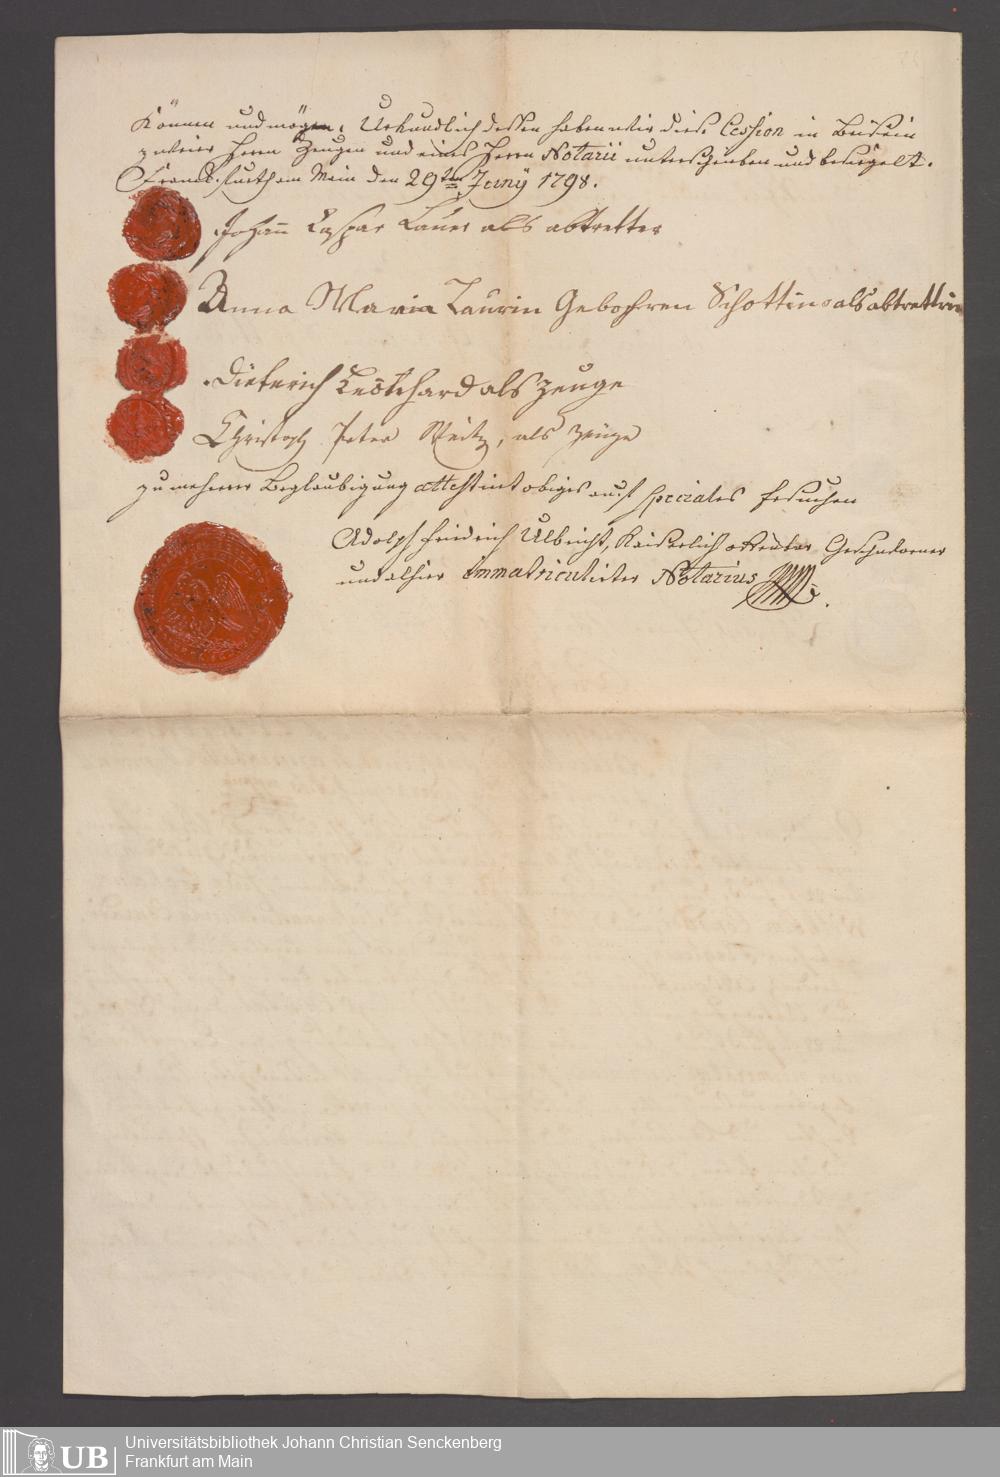 Können und mögen. Urkundlich dessen haben wir diese Cession in Beÿsein
zweier Herrn Zeugen und eines Herrn Notarii unterschrieben und besiegelt.
Franckfurth am Main den 29ten Junÿ 1798.
Johann Caspar Lauer als abtretter
Anna Maria Laurin Gebohren Schottin als abtrettrin
Dieterich Leonhard als zeuge
Christoph Peter Weitz, als zeuge
zu mehrerer Beglaubigung attestirt obiges auf speciales Ersuchen
Adolph Friedrich Ulbricht, Kaiserlich offenbar Geschworner
und alhier immatriculirter Notarius
Universitätsbibliothek Johann Christian Senckenberg
Frankfurt am Main
UB